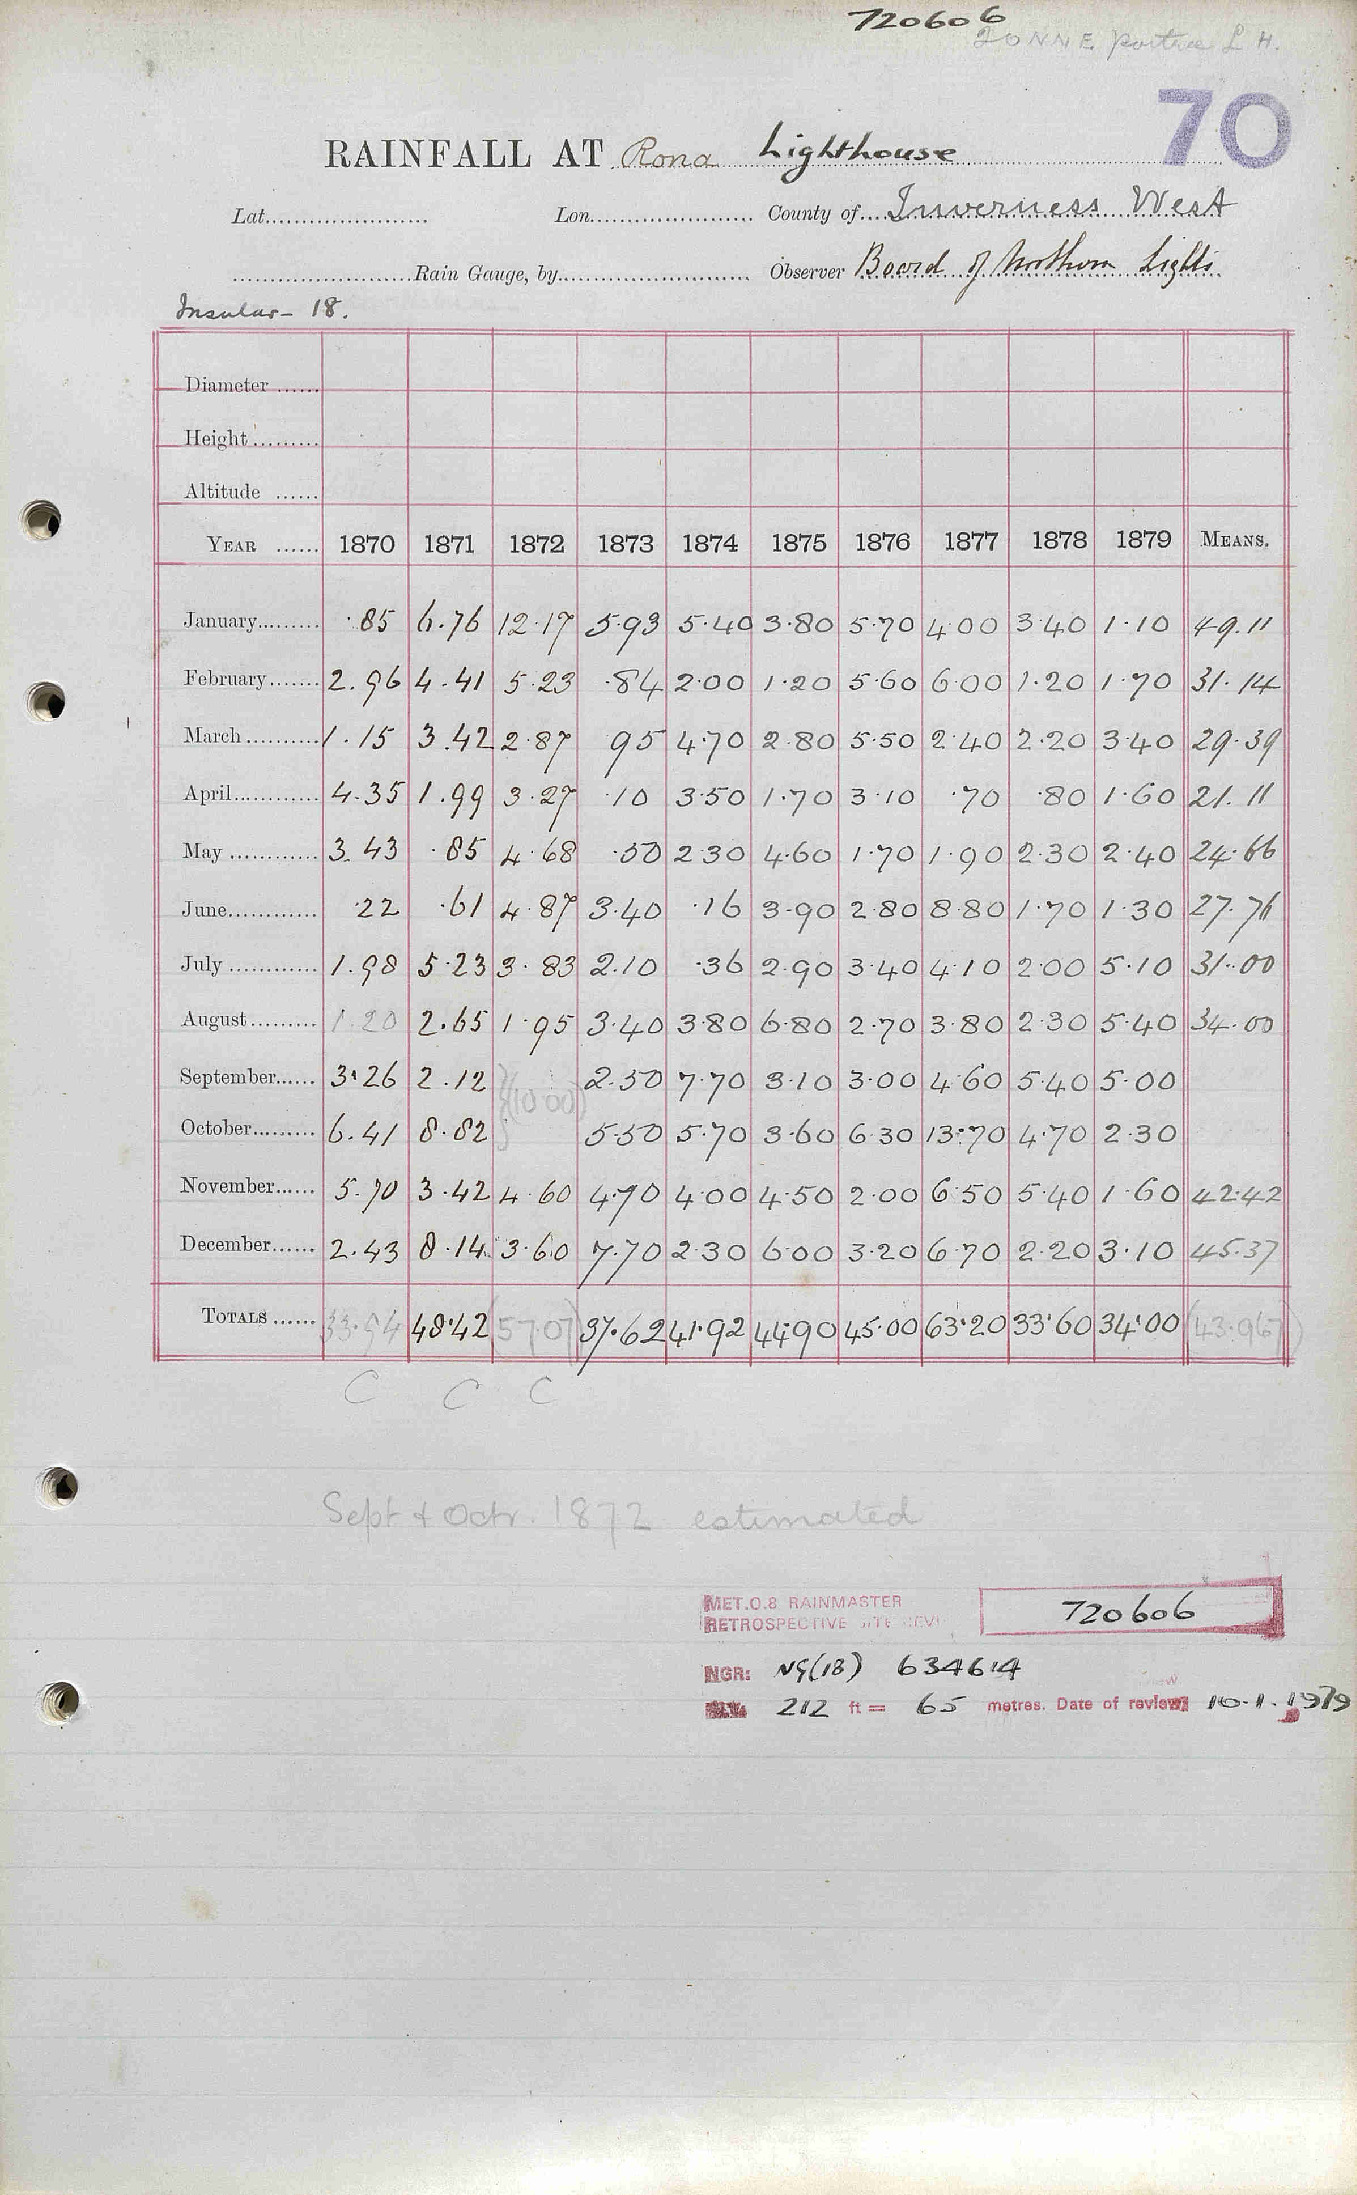 720606
ZONNE Portree L H.
70
RAINFALL AT Rona Lighthouse
Lat. Lon. County of Inverness West
Rain Gauge, by Observer Board of Northern Lights
Insular - 18.
Diameter
Height
Altitude
YEAR 1870 1871 1872 1873 1874 1875 1876 1877 1878 1879 MEANS.
January ·85 6.76 12·17 5·93 5·40 3·80 5·70 4·00 3·40 1·10 49.11
February 2.96 4.41 5·23 ·84 2·00 1·20 5·60 6·00 1·20 1·70 31.14
March 1.15 3.42 2·87 95 4·70 2·80 5·50 2·40 2·20 3·40 29·39
April 4.35 1.99 3·27 ·10 3·50 1·70 3·10 ·70 ·80 1·60 21.11
May 3.43 ·85 4·68 ·50 2·30 4·60 1·70 1·90 2·30 2·40 24·66
June ·22 ·61 4·87 3·40 ·16 3·90 2·80 8·80 1·70 1·30 27.76
July 1.98 5·23 3·83 2·10 ·36 2·90 3·40 4·10 2·00 5·10 31·00
August 1.20 2.65 1·95 3·40 3·80 6·80 2·70 3·80 2·30 5·40 34·00
September 3·26 2.12 2·50 7·70 3·10 3·00 4·60 5·40 5·00
(10·00)
October 6.41 8·82 5·50 5·70 3·60 6·30 13·70 4·70 2·30
November 5.70 3·42 4·60 4·70 4·00 4·50 2·00 6·50 5·40 1·60 42·42
December 2.43 8·14 3·60 7·70 2·30 6·00 3·20 6·70 2·20 3·10 45·37
TOTALS 33·94 48·42 (57·07) 37·62 41·92 44·90 45·00 63·20 33·60 34·00 (43·967)
C C C
Sept + Octr. 1872 estimated
MET.O.8 RAINMASTER
RETROSPECTIVE SITE REVI 720606
NGR: NG(18) 634614
212 ft = 65 metres. Date of review 10·1·1979